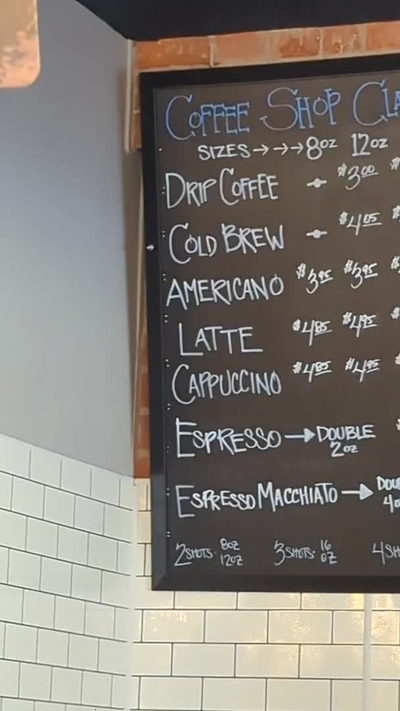 COFFEE SHOP CLA
SIZES→→→8oz 12oz
DRIP COFFEE - $3.00 $
COLD BREW - $4.05 $
AMERICANO $3.95 $3.95 $
LATTE $4.85 $4.95
CAPPUCCINO $4.85 $4.95
ESPRESSO→DOUBLE $
2oz
ESPRESSO MACCHIATO→DOU
4o
2 SHOTS· 8oz 12oz 3 SHOTS· 16 oz 4 SH